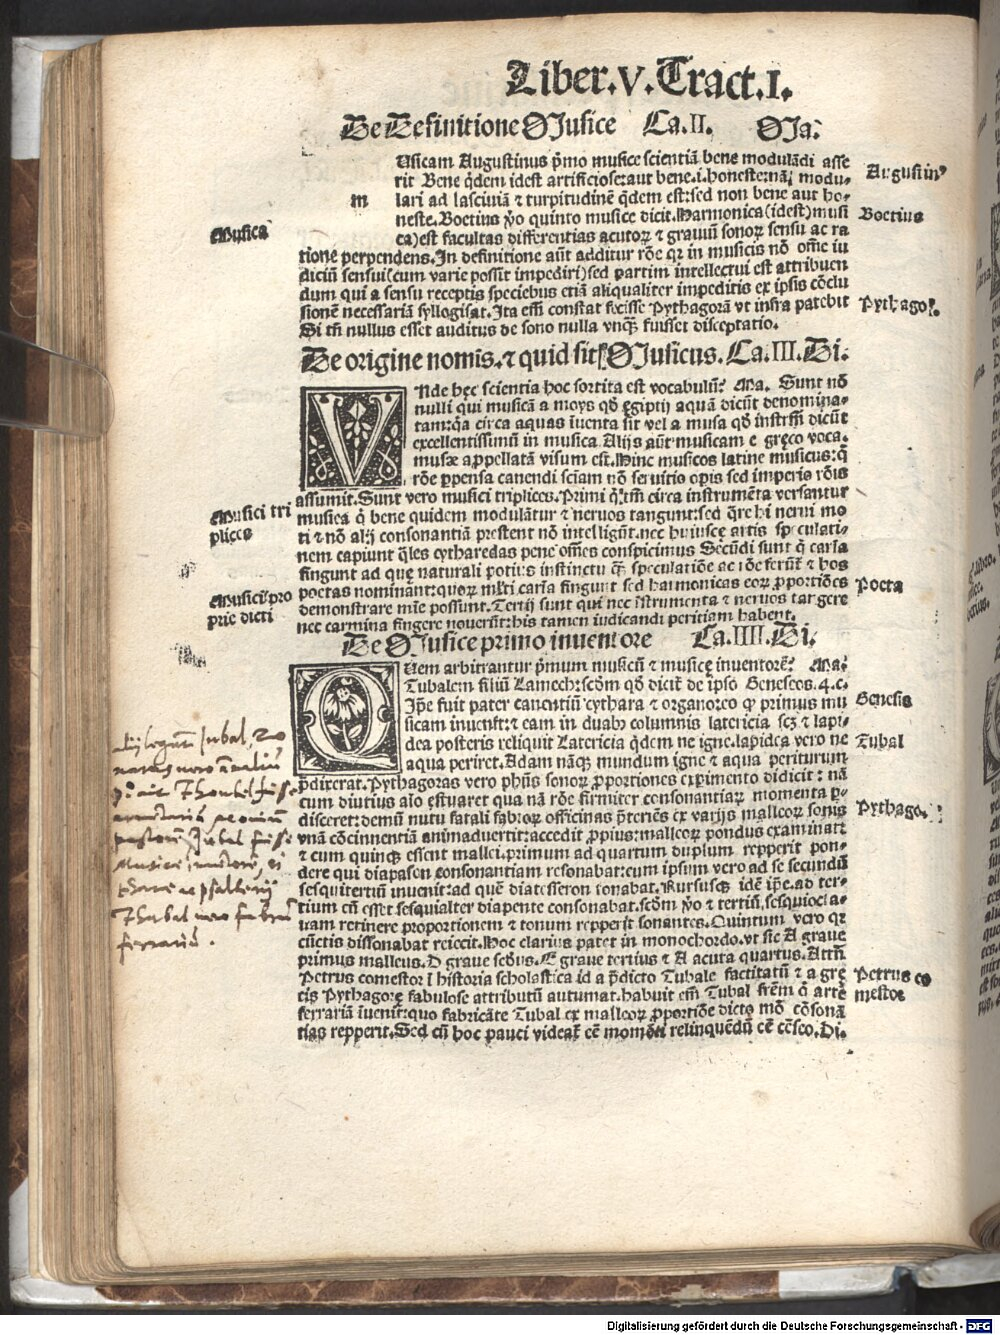 Liber.V.Tract.I.
De Definitione Musice Ca.II. Ma.
Usicam Augustinus p̄mo musice scientiā bene modulādi asse
rit Bene q̄dem idest artificiose:aut bene.i.honeste:nā; modu-
m lari ad lasciuiā ⁊ turpitudinē q̄dem est:sed non bene aut ho-
neste.Boetius ṽo quinto musice dicit.Harmonica(idest)musi
ca)est facultas differentias acutoꝝ ⁊ grauiū sonoꝝ sensu ac ra
tione perpendens.In definitione aūt additur rōe qꝛ in musicis nō om̄e iu
diciū sensui(cum varie possūt impediri)sed partim intellectui est attribuen
dum qui a sensu receptis speciebus etiā aliqualiter impeditis ex ipsis cōclu
sionē necessariā syllogisat.Ita em̄ constat fecisse Pythagorā vt infra patebit
Si tn̄ nullus esset auditus de sono nulla vnq̄ꝫ fuisset disceptatio.
Augustin⁹
Boetius
Pythago⁊.
Musica
De origine nomīs.⁊ quid sit Musicus. Ca.III.Di.
VNde hęc scientia hoc sortita est vocabulū? Ma. Sunt nō
nulli qui musicā a moys qd̄ ęgiptij aquā dicūt denomina-
tam:q̄a circa aquas īuenta sit vel a musa qd̄ instrm̄ dicūt
excellentissimū in musica.Alijs aūt musicam e gręco voca.
musæ appellatā visum est.Hinc musicos latine musicus:q̄
rōe ꝑpensa canendi sciam nō seruitio opis sed imperio rōis
assumit.Sunt vero musici triplices.Primi q̄;em̄ circa instrumēta versantur
musica q̄ bene quidem modulātur ⁊ neruos tangunt:sed q̄re hi nerui mo
ti ⁊ nō alij consonantiā prestent nō intelligūt.nec huiusce artis speculati-
nem capiunt q̄les cytharedas pene om̄es conspicimus Secūdi sunt q̄ carīa
fingunt ad quę naturali potius instinctu q̄ꝫ speculatiōe ac rōe ferūt ⁊ hos
poetas nominant:quoꝝ ml̄ti carīa fingunt sed harmonicas eoꝝ ꝓportiōes
demonstrare mīe possunt.Tertij sunt qui nec īstrumenta ⁊ neruos tangere
nec carmina fingere nouerūt:his tamen iudicandi peritiam habent.
Musici tri
plices
Musici pro
prie dicti
Poeta
De Musice primo inuentore Ca.IIII.Di.
QUem arbitrantur p̄mum musicū ⁊ musicę inuentorē? Ma.
Tubalem filiū Lamech:scd̄m qd̄ dicit̄ de īpso Geneseos.4.c.
Ip̄e fuit pater canentiū cythara ⁊ organo:eo qꝫ primus mu
sicam inuenit:⁊ eam in duabꝰ columnis latericia scꝫ ⁊ lapi-
dea posteris reliquit Latericia q̄dem ne igne.lapidea vero ne
aqua periret.Adam nāqꝫ mundum igne ⁊ aqua periturum
p̄dixerat.Pythagoras vero ph̄us sonoꝝ ꝓportiones exꝑimento didicit: nā
cum diutius aīo ęstuaret qua nā rōe firmiter consonantiaꝝ momenta ꝑ-
disceret:demū nutu fatali fabroꝝ officinas p̄teriēs ex varijs malleoꝝ sonis
vnā cōcinnentiā animaduertit:accedit ꝓpius:malleoꝝ pondus examinat:
⁊ cum quinqꝫ essent mallei.primum ad quartum duplum repperit pon-
dere qui diapason consonantiam resonabat:eum ipsum vero ad se secundū
sesquitertiū inuenit:ad quē diatesseron tonabat.Rursusqꝫ idē ip̄e.ad ter-
tium cū esset sesquialter diapente consonabat.scd̄m ṽo ⁊ tertiū.sesquiocta-
uam retinere proportionem ⁊ tonum repperit sonantes.Quintum vero qꝛ
cūctis dissonabat reiecit.Hoc clarius patet in monochordo.vt sit A graue
primus malleus.D graue scd̄us.E graue tertius ⁊ A acuta quartus.Attn̄
Petrus comestor ī historia scholastica id a p̄dicto Tubale factitatū ⁊ a grę
cis Pythagorę fabulose attributū autumat.habuit em̄ Tubal frēm q̄ artē
ferrariā īuenit:quo fabricāte Tubal ex malleoꝝ ꝓportiōe dicto mō cōsonā
tias repperit.Sed cū hoc pauci videat̄ cē momēti relinquēdū cē cēseo.Di.
Genesis
Tubal
Pythago.
Petrus co
mestor
ferrariū.
Digitalisierung gefördert durch die Deutsche Forschungsgemeinschaft - DFG